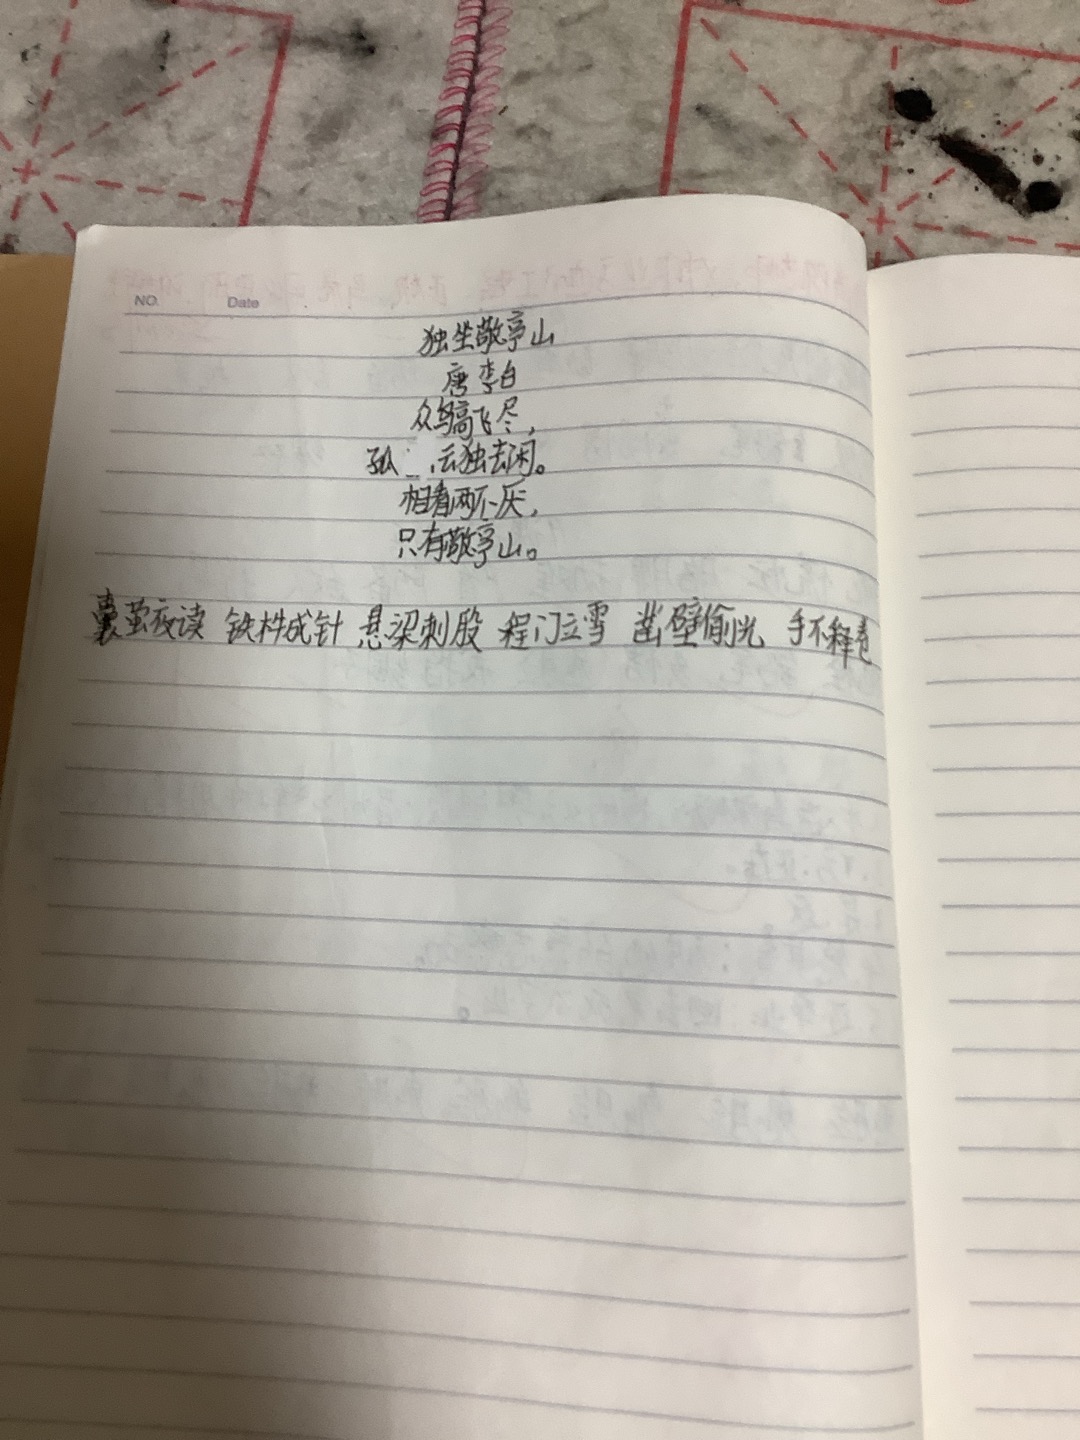 NO. Date
独坐敬亭山
唐 李白
众鸟高飞尽，
孤云独去闲。
相看两不厌，
只有敬亭山。
囊萤夜读 铁杵成针 悬梁刺股 程门立雪 凿壁偷光 手不释卷